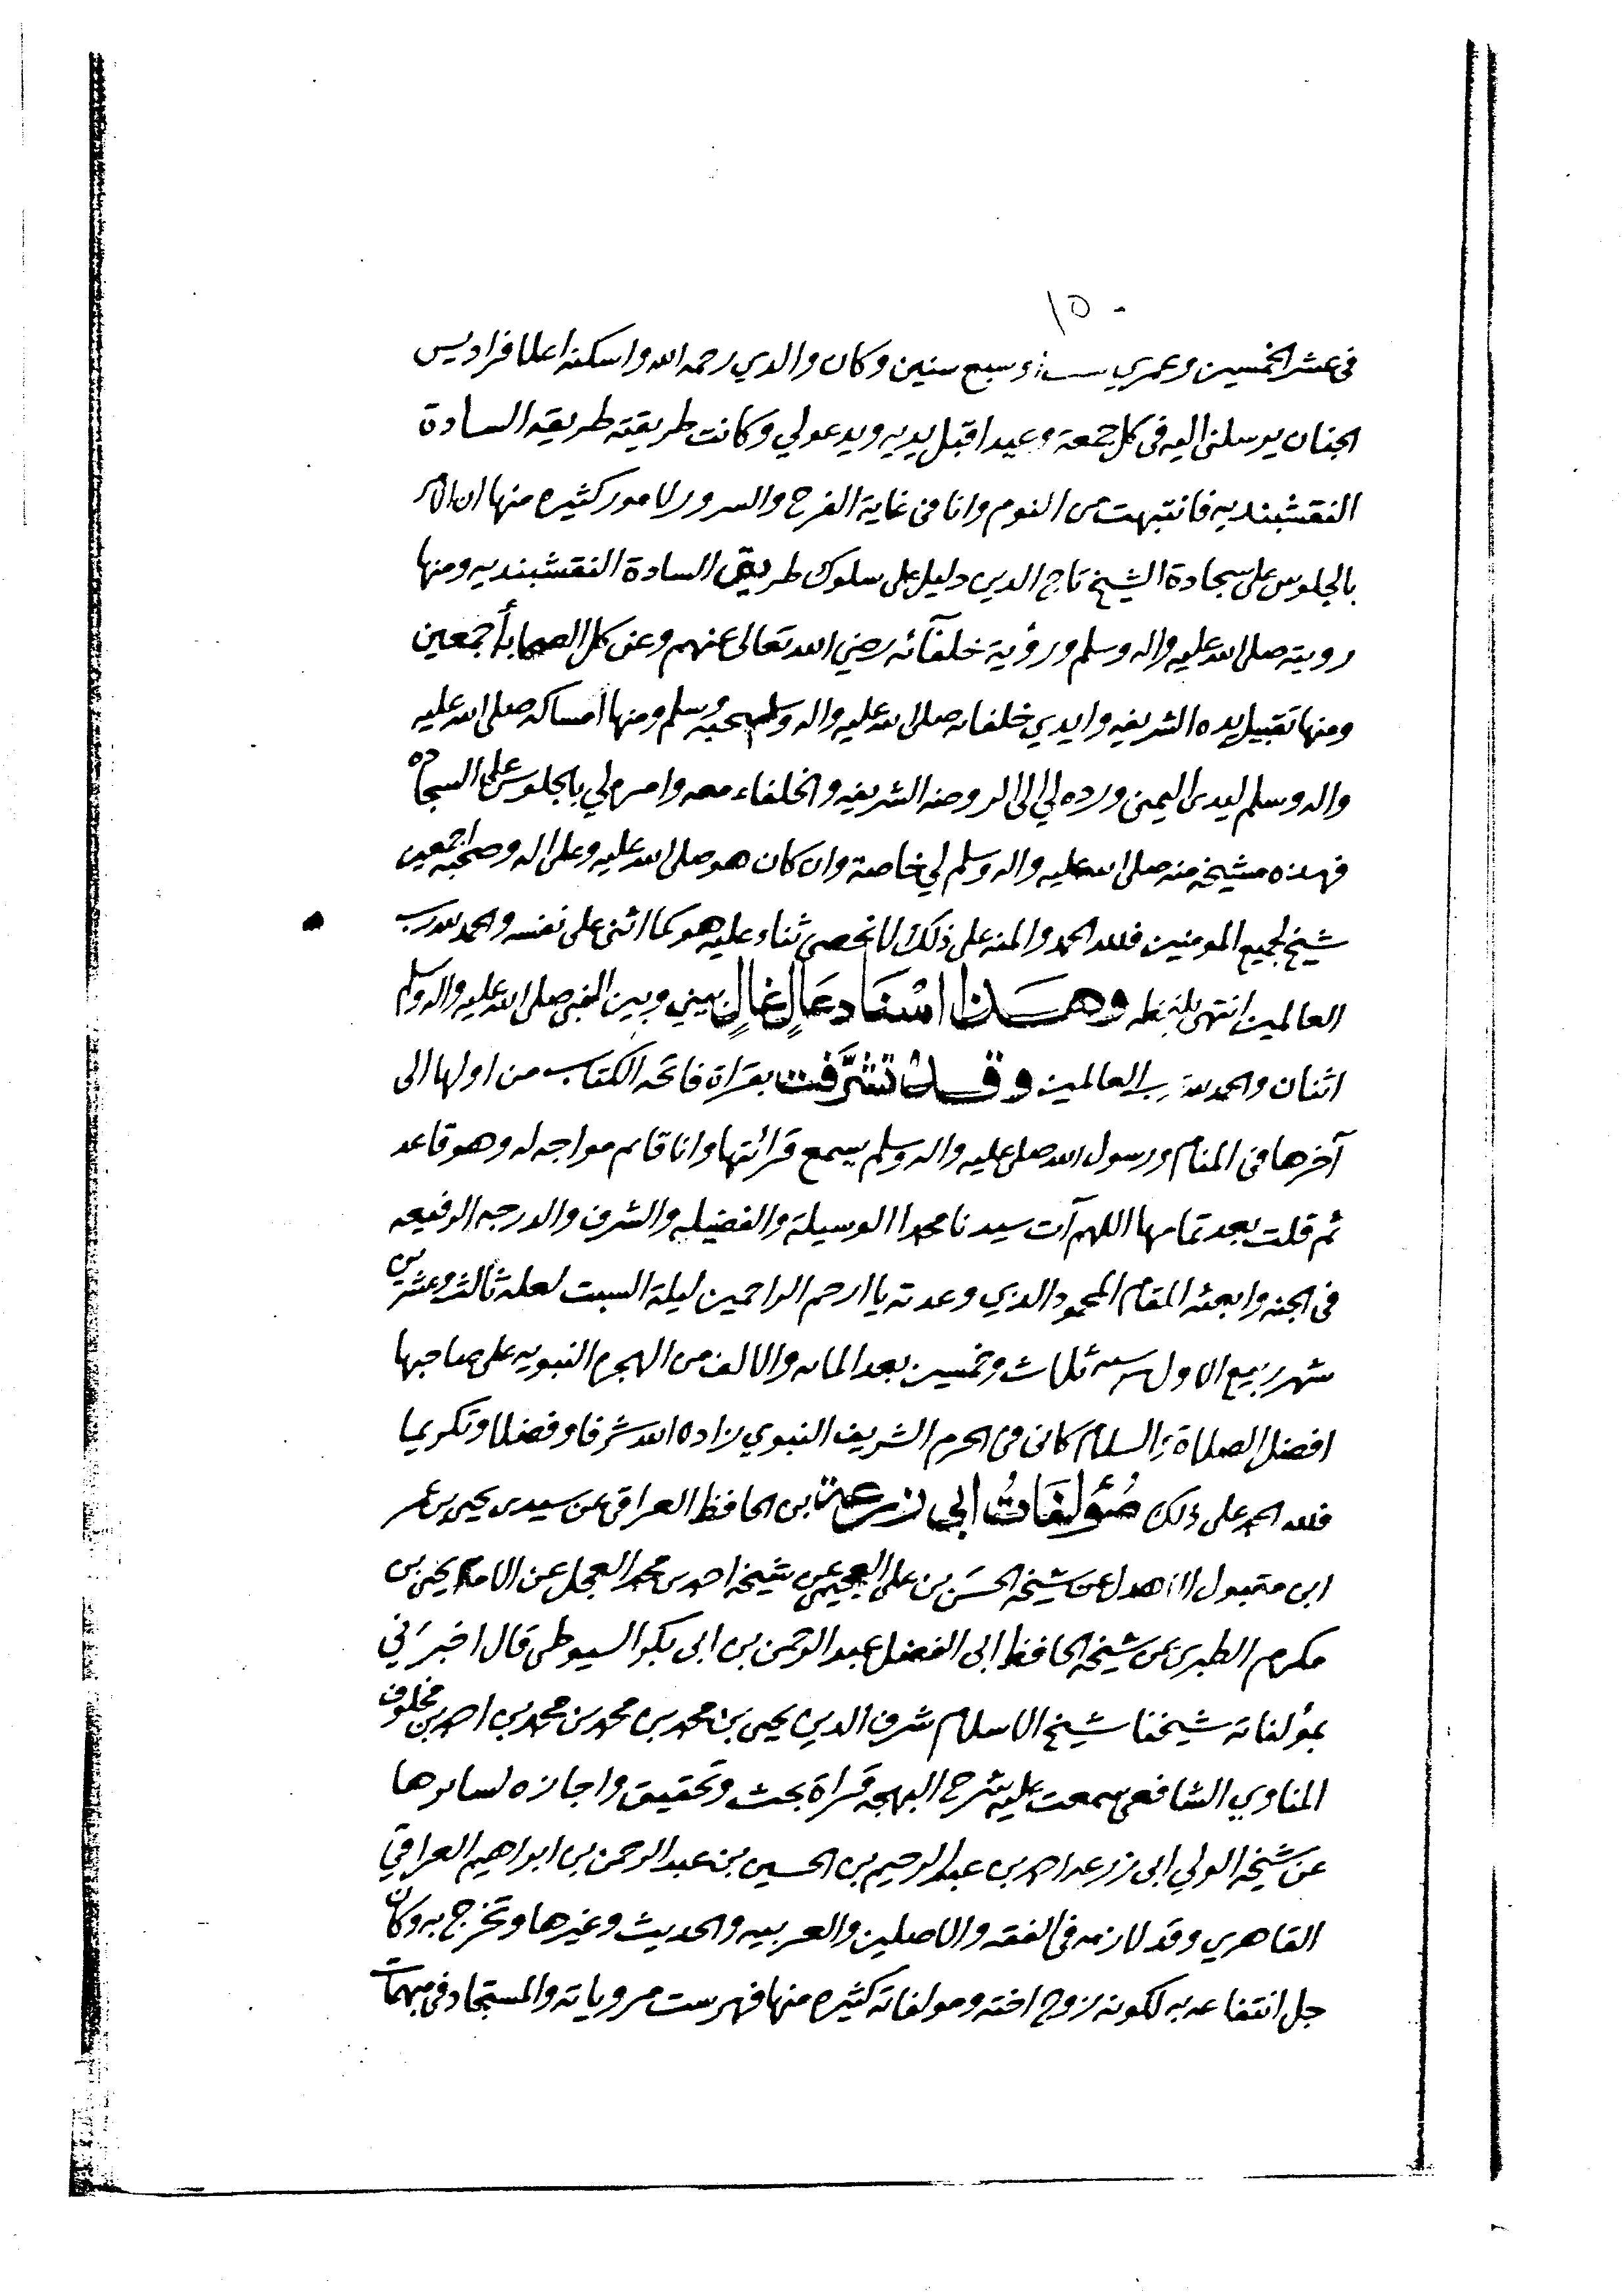 ١٥٠
في عشر الخمسين وعمري ست او سبع سنين وكان والدي رحمه الله واسكنه اعلا فراديس
الجنان يرسلني اليه في كل جمعة وعيد اقبل يديه ويدعو لي وكانت طريقته طريقه السادة
النقشبنديه فانتبهت من النوم وانا في غاية الفرح والسرور لامور كثيره منها ان الامر
بالجلوس على سجادة الشيخ تاج الدين دليل على سلوك طريق السادة النقشبنديه ومنها
رويته صلى الله عليه واله وسلم ورؤية خلفآئه رضي الله تعالى عنهم وعن كل الصحابة أجمعين
ومنها تقبيل يده الشريفه وايدي خلفائه صلى الله عليه واله وصحبه وسلم ومنها امساكه صلى الله عليه
واله وسلم ليدي اليمنى ورده لي الى الروضه الشريفه والخلفاء معه وامره لي بالجلوس على السجاده
فهذه مشيخه منه صلى الله عليه واله وسلم لي خاصة وان كان هو صلى الله عليه وعلى اله وصحبه اجمعين
شيخ لجميع المومنين فلله الحمد والمنه على ذلك لا نحصي ثناء عليه هو كما اثنى على نفسه والحمد لله رب
العالمين انتهى بلفظه وهذا اسْنَاد عَالٍ غالٍ بيني وبين النبي صلى الله عليه واله وسلم
اثنان والحمد لله رب العالمين وقد تشرَّفت بقراة فاتحه الكتاب من اولها الى
آخرها في المنام ورسول الله صلى عليه واله وسلم يسمع قرائتها وانا قائم مواجه له وهو قاعد
ثم قلت بعد تمامها اللهم آت سيدنا محمدا الوسيلة والفضيله والشرف والدرجه الرفيعه
في الجنه وابعثه المقام المحمود الذي وعدته يا ارحم الراحمين ليلة السبت لعله ثالث وعشرين
شهر ربيع الاول سنه ثلاث وخمسين بعد المائه والالف من الهجره النبويه على صاحبها
افضل الصلاة والسلام كاني في الحرم الشريف النبوي زاده الله شرفا وفضلا وتكريما
فلله الحمد على ذلك مُؤلفَاتُ ابي زرعة بن الحافظ العراقي عن سيدي يحيى بن عمر
ابن مقبول الاهدل عن شيخه الحسَن بن علي العجيمي عن شيخه احمد بن محمد العجل عن الامام يحيى بن
مكرم الطبري عن شيخه الحافظ ابي الفضل عبد الرحمن بن ابي بكر السيوطي قال اخبرَني
بمؤلفاته شيخنا شيخ الاسلام شرف الدين يحيى بن محمد بن محمد بن محمد بن احمد بن مخلوف
المناوي الشافعي سمعت عليه شرح البهجه قراة بحث وتحقيق واجازه لسائرها
عن شيخه الولي ابي زرعه احمد بن عبد الرحيم بن الحسين بن عبد الرحمن بن ابراهيم العراقي
القاهري وقد لازمه في الفقه والاصلين والعربيه والحديث وغيرها وتخرج به وكان
جل انتفاعه به لكونه زوج اخته ومولفاته كثيره منها فهرست مروياته والمستجاد في مبهمات